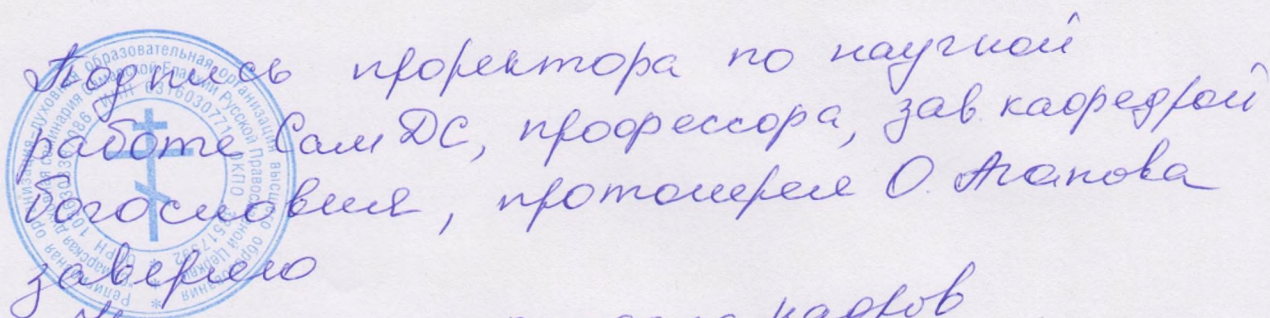 Подпись проректора по научной
работе СамДС, профессора, зав. кафедрой
богословия, протоиерея О. Агапова
заверяю
кадров